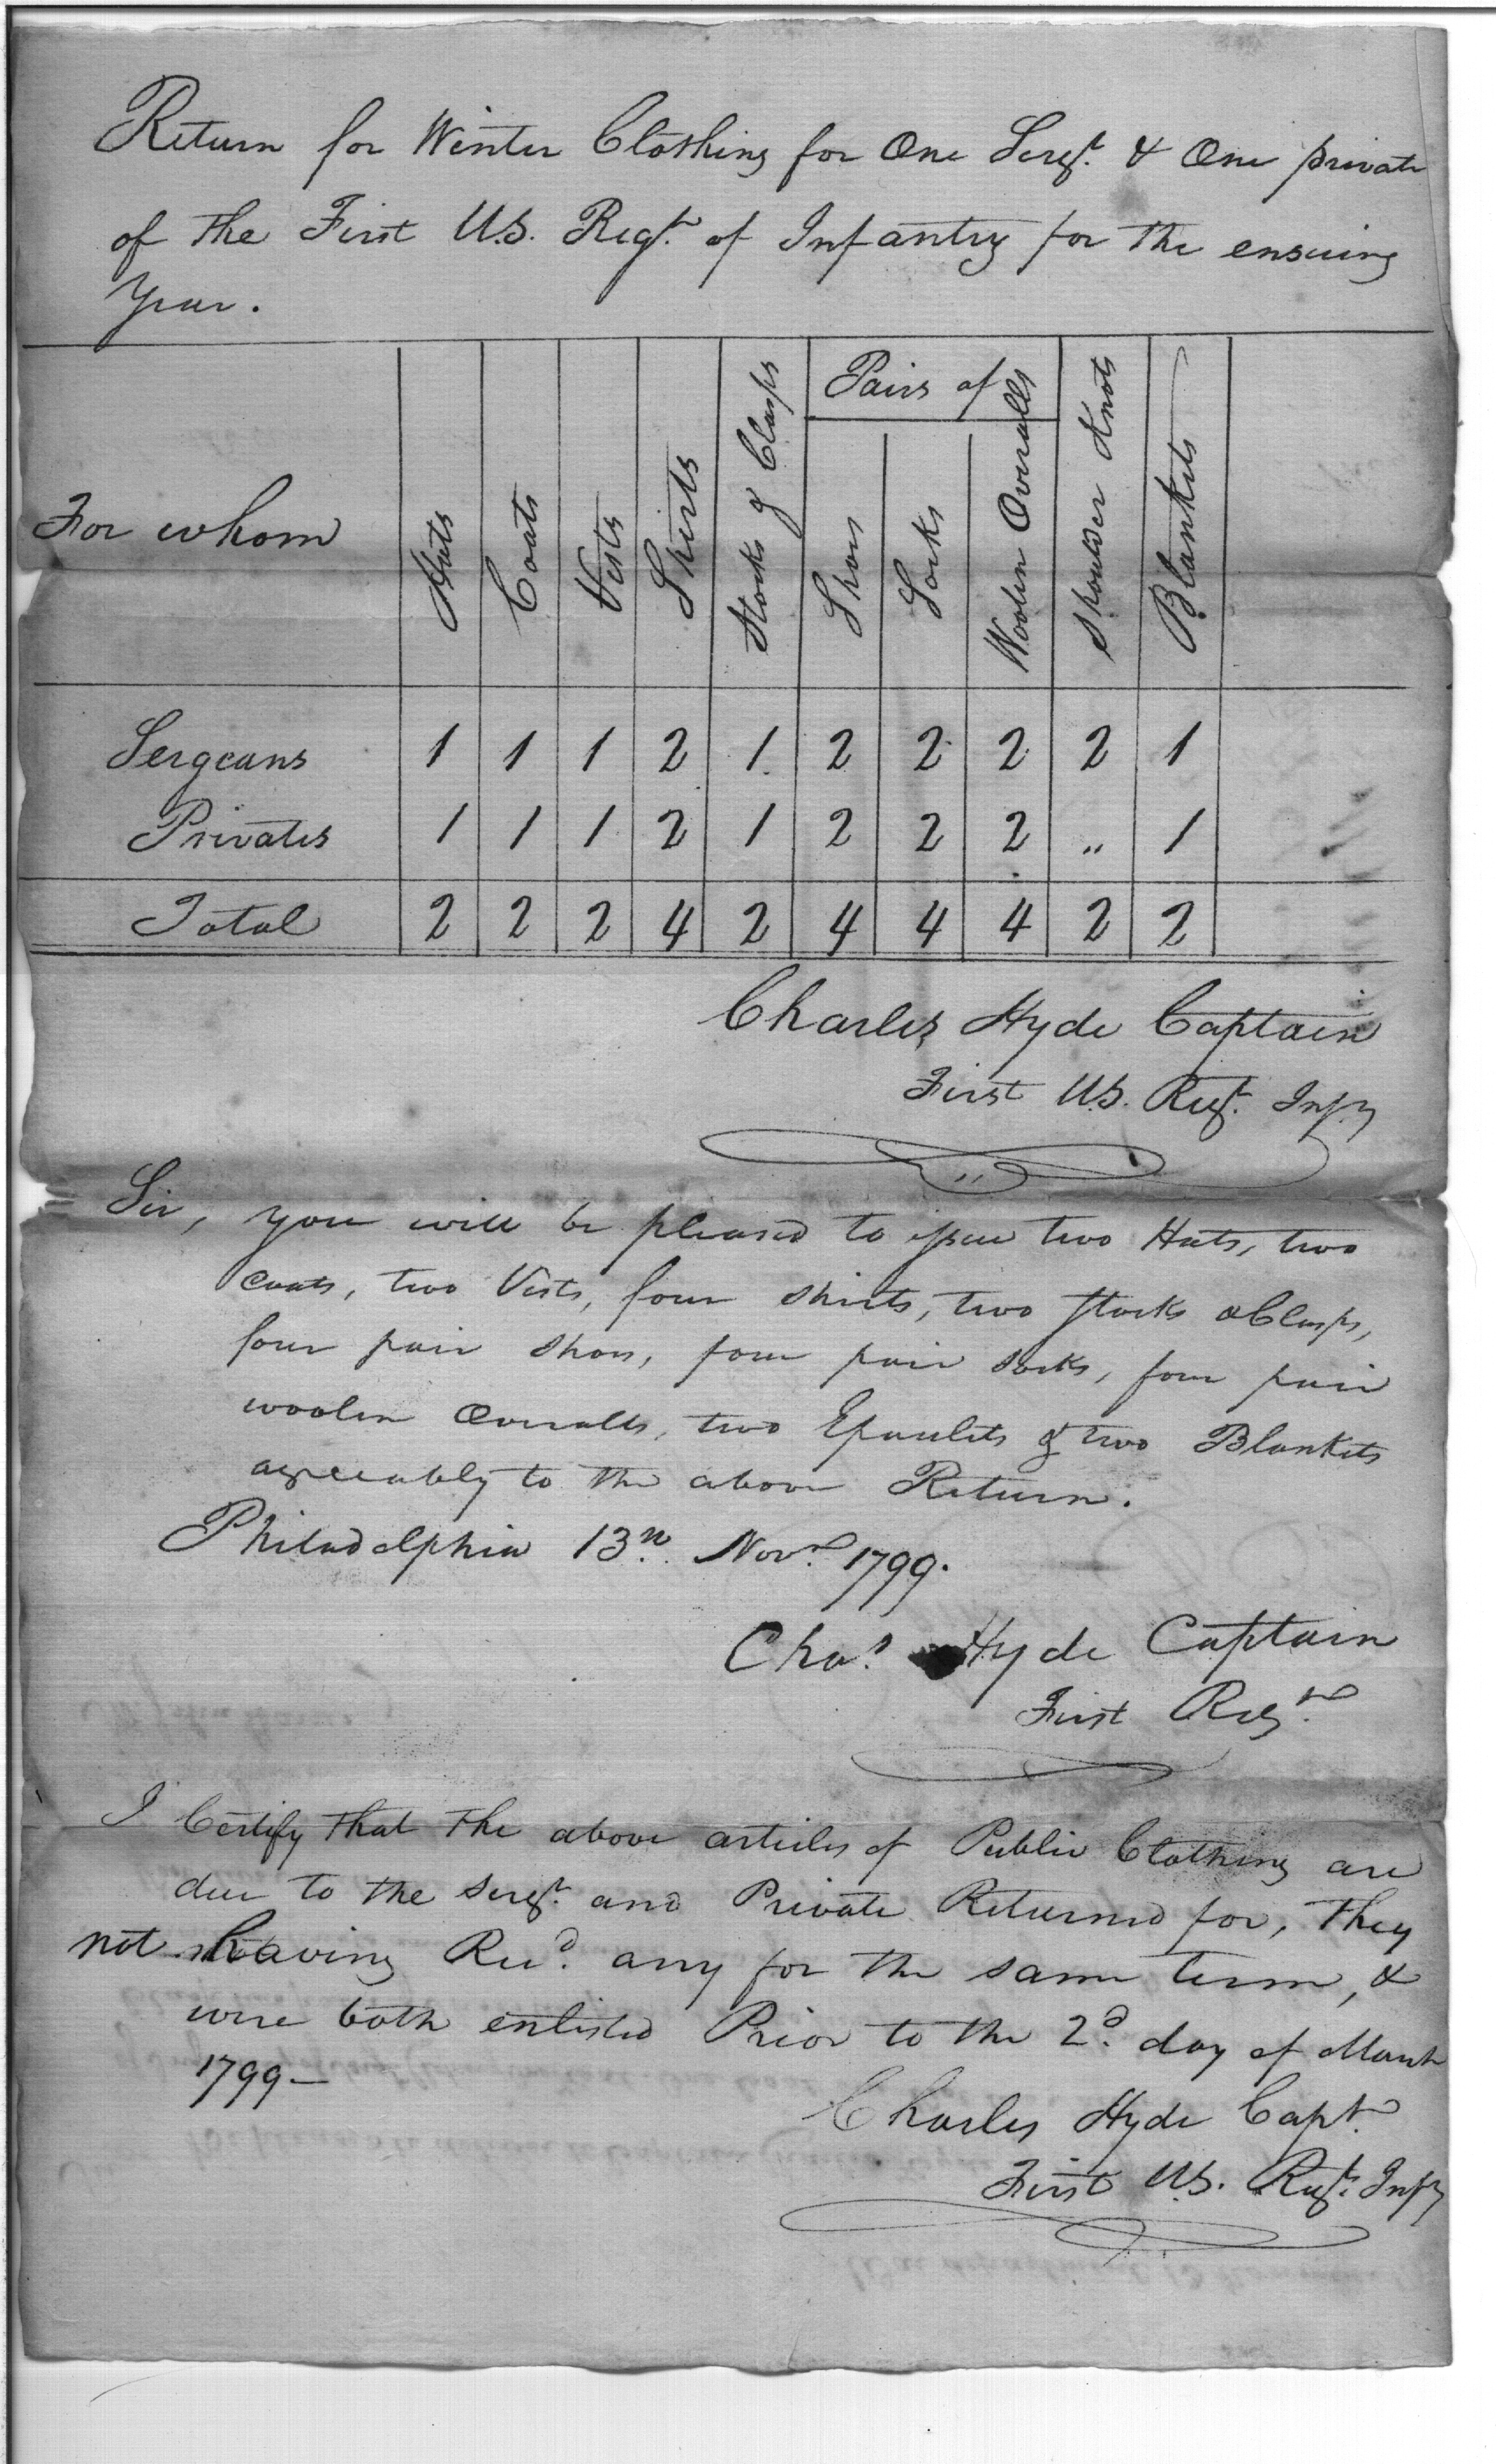 Return for Winter Clothing for One Sergt. & One private
of the First U.S. Regt. of Infantry for the ensuing
Year.
For whom | Hats | Coats | Vests | Shirts | Stocks & Clasps | Pairs of | Shoes | Socks | Woolen Overalls | Shoulder Knots | Blankets
Sergeans 1 1 1 2 1 2 2 2 2 1
Privates 1 1 1 2 1 2 2 2 " 1
Total 2 2 2 4 2 4 4 4 2 2
Charles Hyde Captain
First U.S. Regt. Infy
Sir, you will be pleased to issue two Hats, two
Coats, two Vests, four shirts, two stocks & Clasps,
four pair shoes, four pair socks, four pair
woolen Overalls, two Epaulets & two Blankets
agreeably to the above Return.
Philadelphia 13th. Novr. 1799.
Chas. Hyde Captain
First Regt.
I Certify that the above articles of Public Clothing are
due to the Sergt. and Private Returned for, they
not having Recd. any for the same term, &
were both enlisted Prior to the 2d. day of March
1799—
Charles Hyde Capt.
First U.S. Regt. Infy